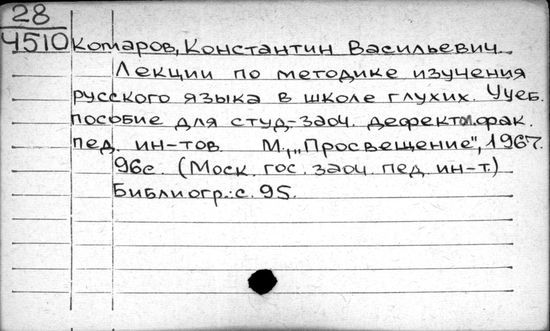 28
Ч510 Комаров, Константин Васильевич.
Лекции по методике изучения
русского языка в школе глухих. Учеб.
пособие для студ.-заоч. дефектол. фак.
пед. ин-тов. М., "Просвещение", 1967.
96с. (Моск. гос. заоч. пед. ин-т.)
Библиогр.: с. 95.